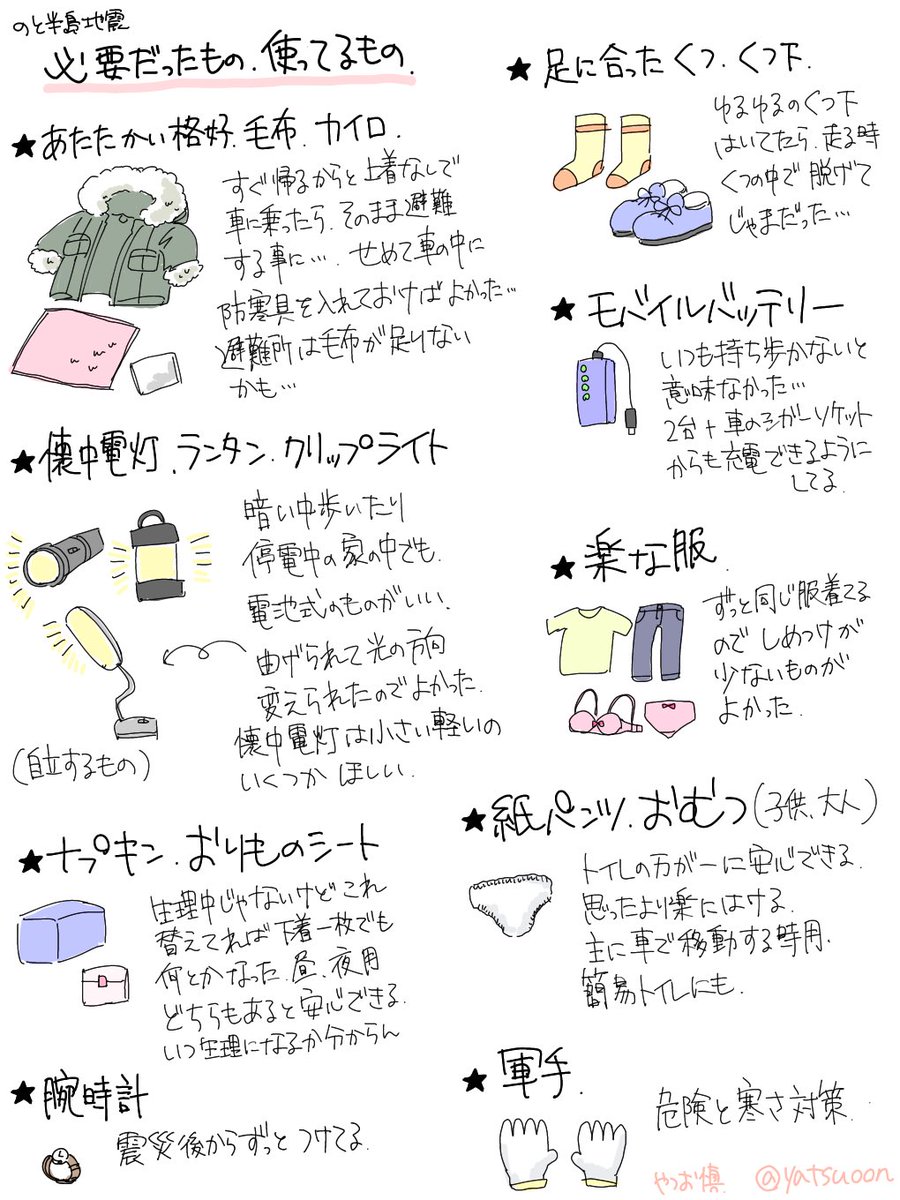 のと半島地震
必要だったもの.使ってるもの.
★あたたかい格好.毛布.カイロ.
すぐ帰るからと上着なしで
車に乗ったら、そのまま避難
する事に…. せめて車の中に
防寒具を入れておけばよかった…
避難所は毛布が足りない
かも…
★懐中電灯.ランタン.クリップライト
暗い中歩いたり
停電中の家の中でも.
電池式のものがいい.
曲げられて光の方向
変えられたのでよかった.
懐中電灯は小さい軽いの
いくつか ほしい.
(自立するもの)
★ナプキン.おりものシート
生理中じゃないけどこれ
替えてれば下着一枚でも
何とかなった.昼、夜用
どちらもあると安心できる.
いつ生理になるか分からん
★腕時計
震災後からずっとつけてる.
★足に合ったくつ.くつ下.
ゆるゆるのくつ下
はいてたら、走る時
くつの中で脱げて
じゃまだった…
★モバイルバッテリー
いつも持ち歩かないと
意味なかった…
2台+車のシガーソケット
からも充電できるように
してる.
★楽な服.
ずっと同じ服着てる
ので しめつけが
少ないものが
よかった.
★紙パンツ.おむつ(子供、大人)
トイレの万が一に安心できる.
思ったより楽にはける.
主に車で移動する時用.
簡易トイレにも.
★軍手.
危険と寒さ対策.
やつお慎 @yatsuoon